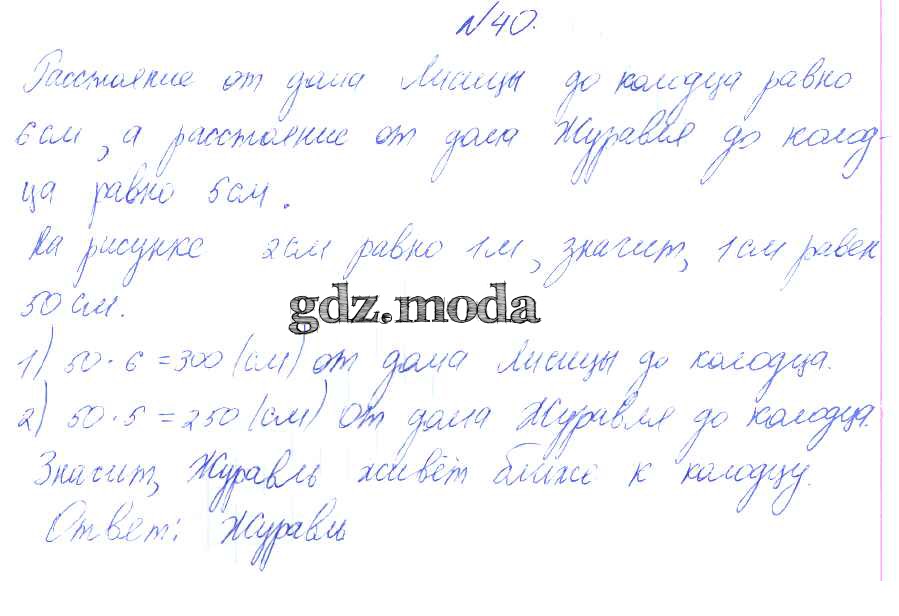 №40.
Расстояние от дома Лисицы до колодца равно
6см, а расстояние от дома Журавля до колод-
ца равно 5см.
На рисунке 2см равно 1м, значит, 1см равен
50см.
gdz.moda
1) 50·6=300(см) от дома Лисицы до колодца.
2) 50·5=250(см) от дома Журавля до колодца.
Значит, Журавль живёт ближе к колодцу.
Ответ: Журавль